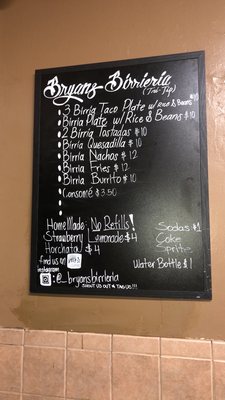 Bryanz Birrieria
(Tri-Tip)
3 Birria Taco Plate w/ Rice & Beans $10
Birria Plate w/ Rice & Beans $10
2 Birria Tostadas $10
Birria Quesadilla $10
Birria Nachos $12
Birria Fries $12
Birria Burrito $10
Consomé $3.50
Home Made: No Refills!
Strawberry Lemonade $4
Horchata $4
Sodas $1
Coke
Sprite
Water Bottle $1
find us on
instagram
:@_bryansbirrieria
SHOUT US OUT & TAG US!!!